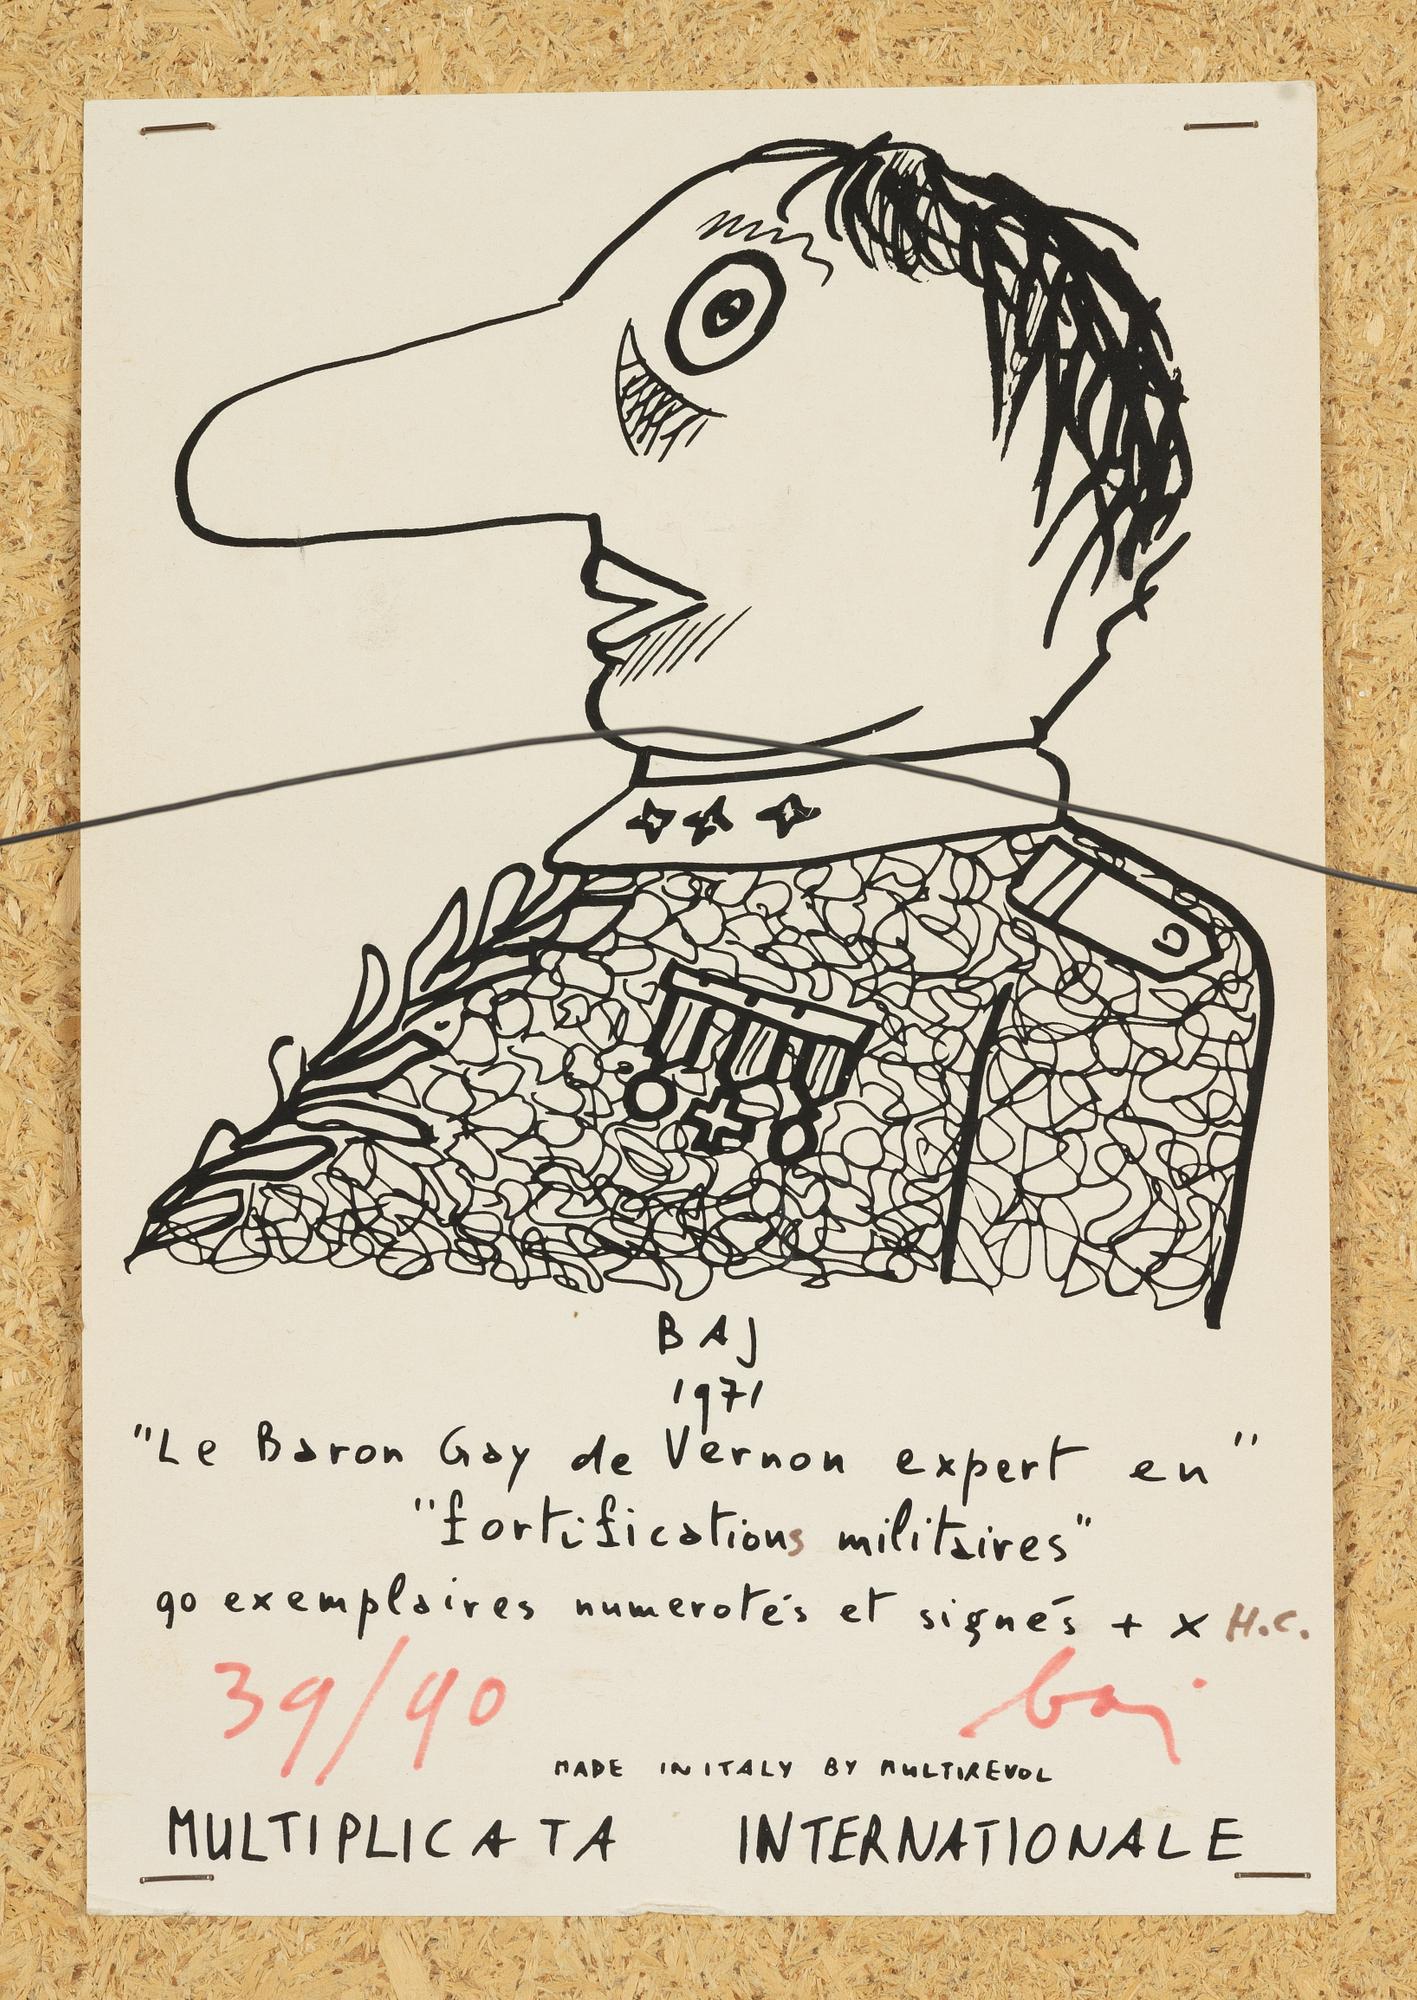 BAJ
1971
"Le Baron Gay de Vernon expert en"
"fortifications militaires"
90 exemplaires numerotés et signés + x H.C.
39/90 baj
MADE IN ITALY BY MULTIREVOL
MULTIPLICATA INTERNATIONALE